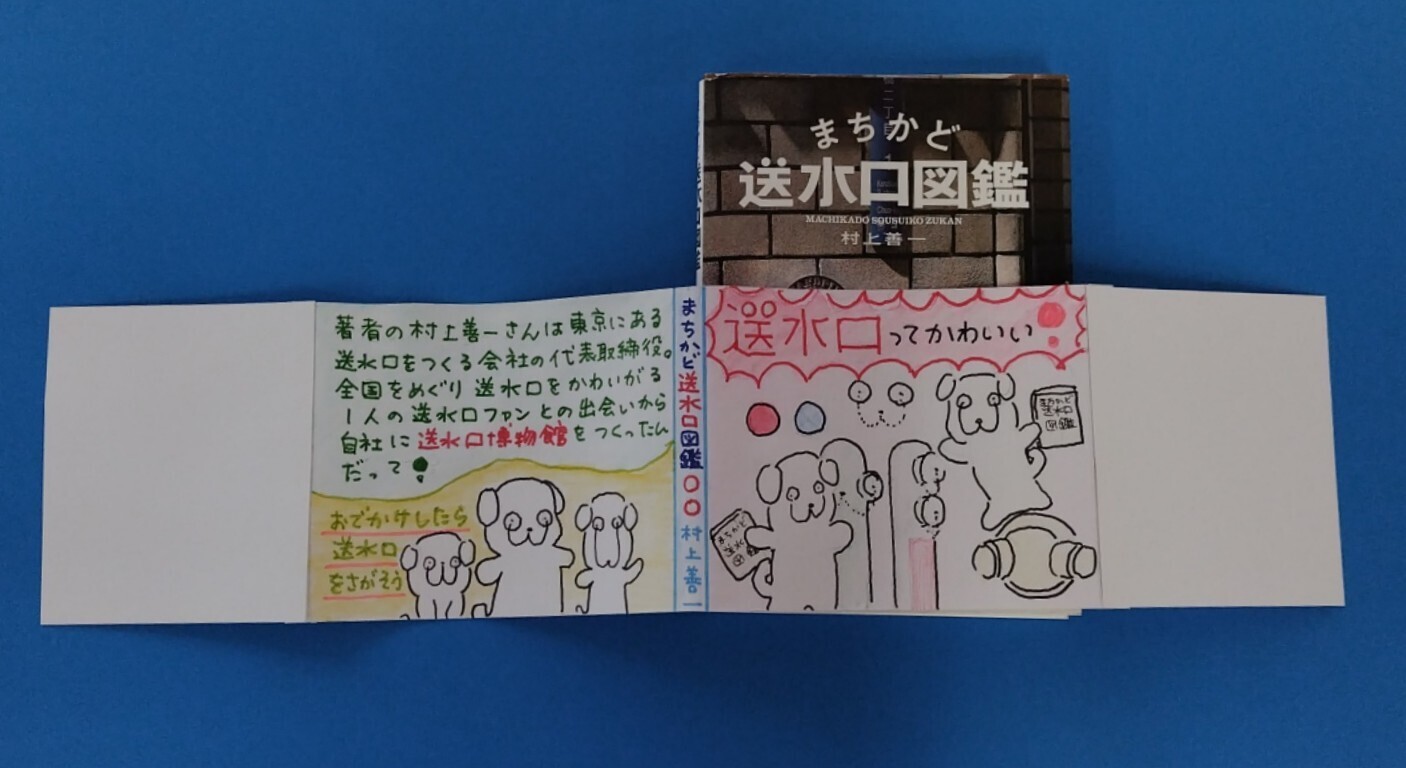 まちかど
送水口図鑑
MACHIKADO SOUSUIKO ZUKAN
村上善一
著者の村上善一さんは東京にある
送水口をつくる会社の代表取締役。
全国をめぐり送水口をかわいがる
1人の送水口ファンとの出会いから
自社に送水口博物館をつくったん
だって!
おでかけしたら
送水口
をさがそう
まちかど送水口図鑑
村上善一
送水口ってかわいい!
まちかど
送水口
図鑑
まちかど
送水口
図鑑